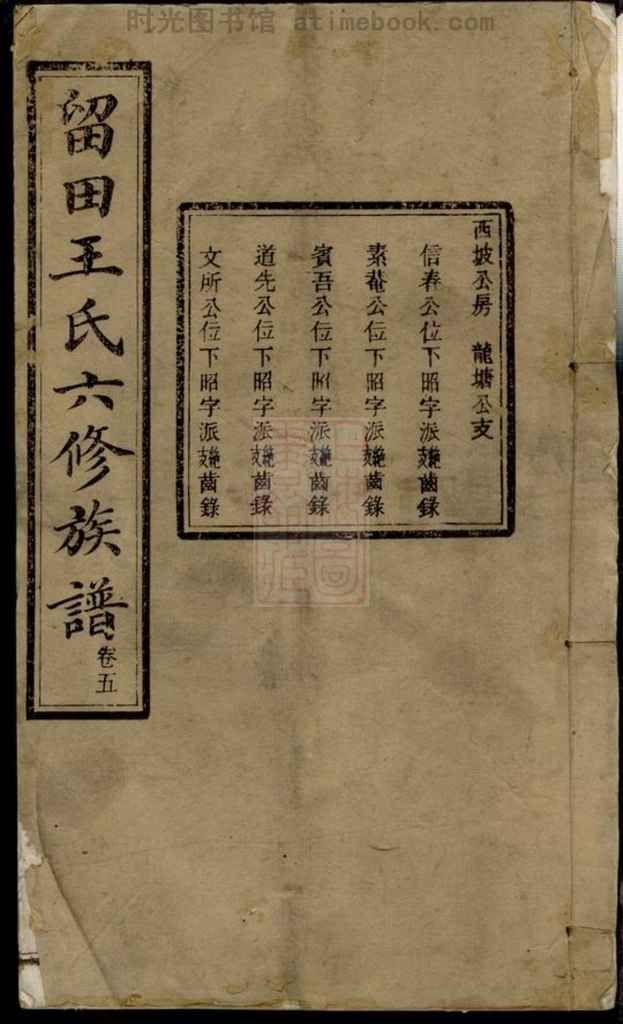 时光图书馆 atimebook.com
西坡公房 龍塘公支
信春公位下昭字派支繞齒錄
素菴公位下昭字派支繞齒錄
賓吾公位下昭字派支繞齒錄
道先公位下昭字派支繞齒錄
文所公位下昭字派支繞齒錄
留田王氏六修族譜卷五